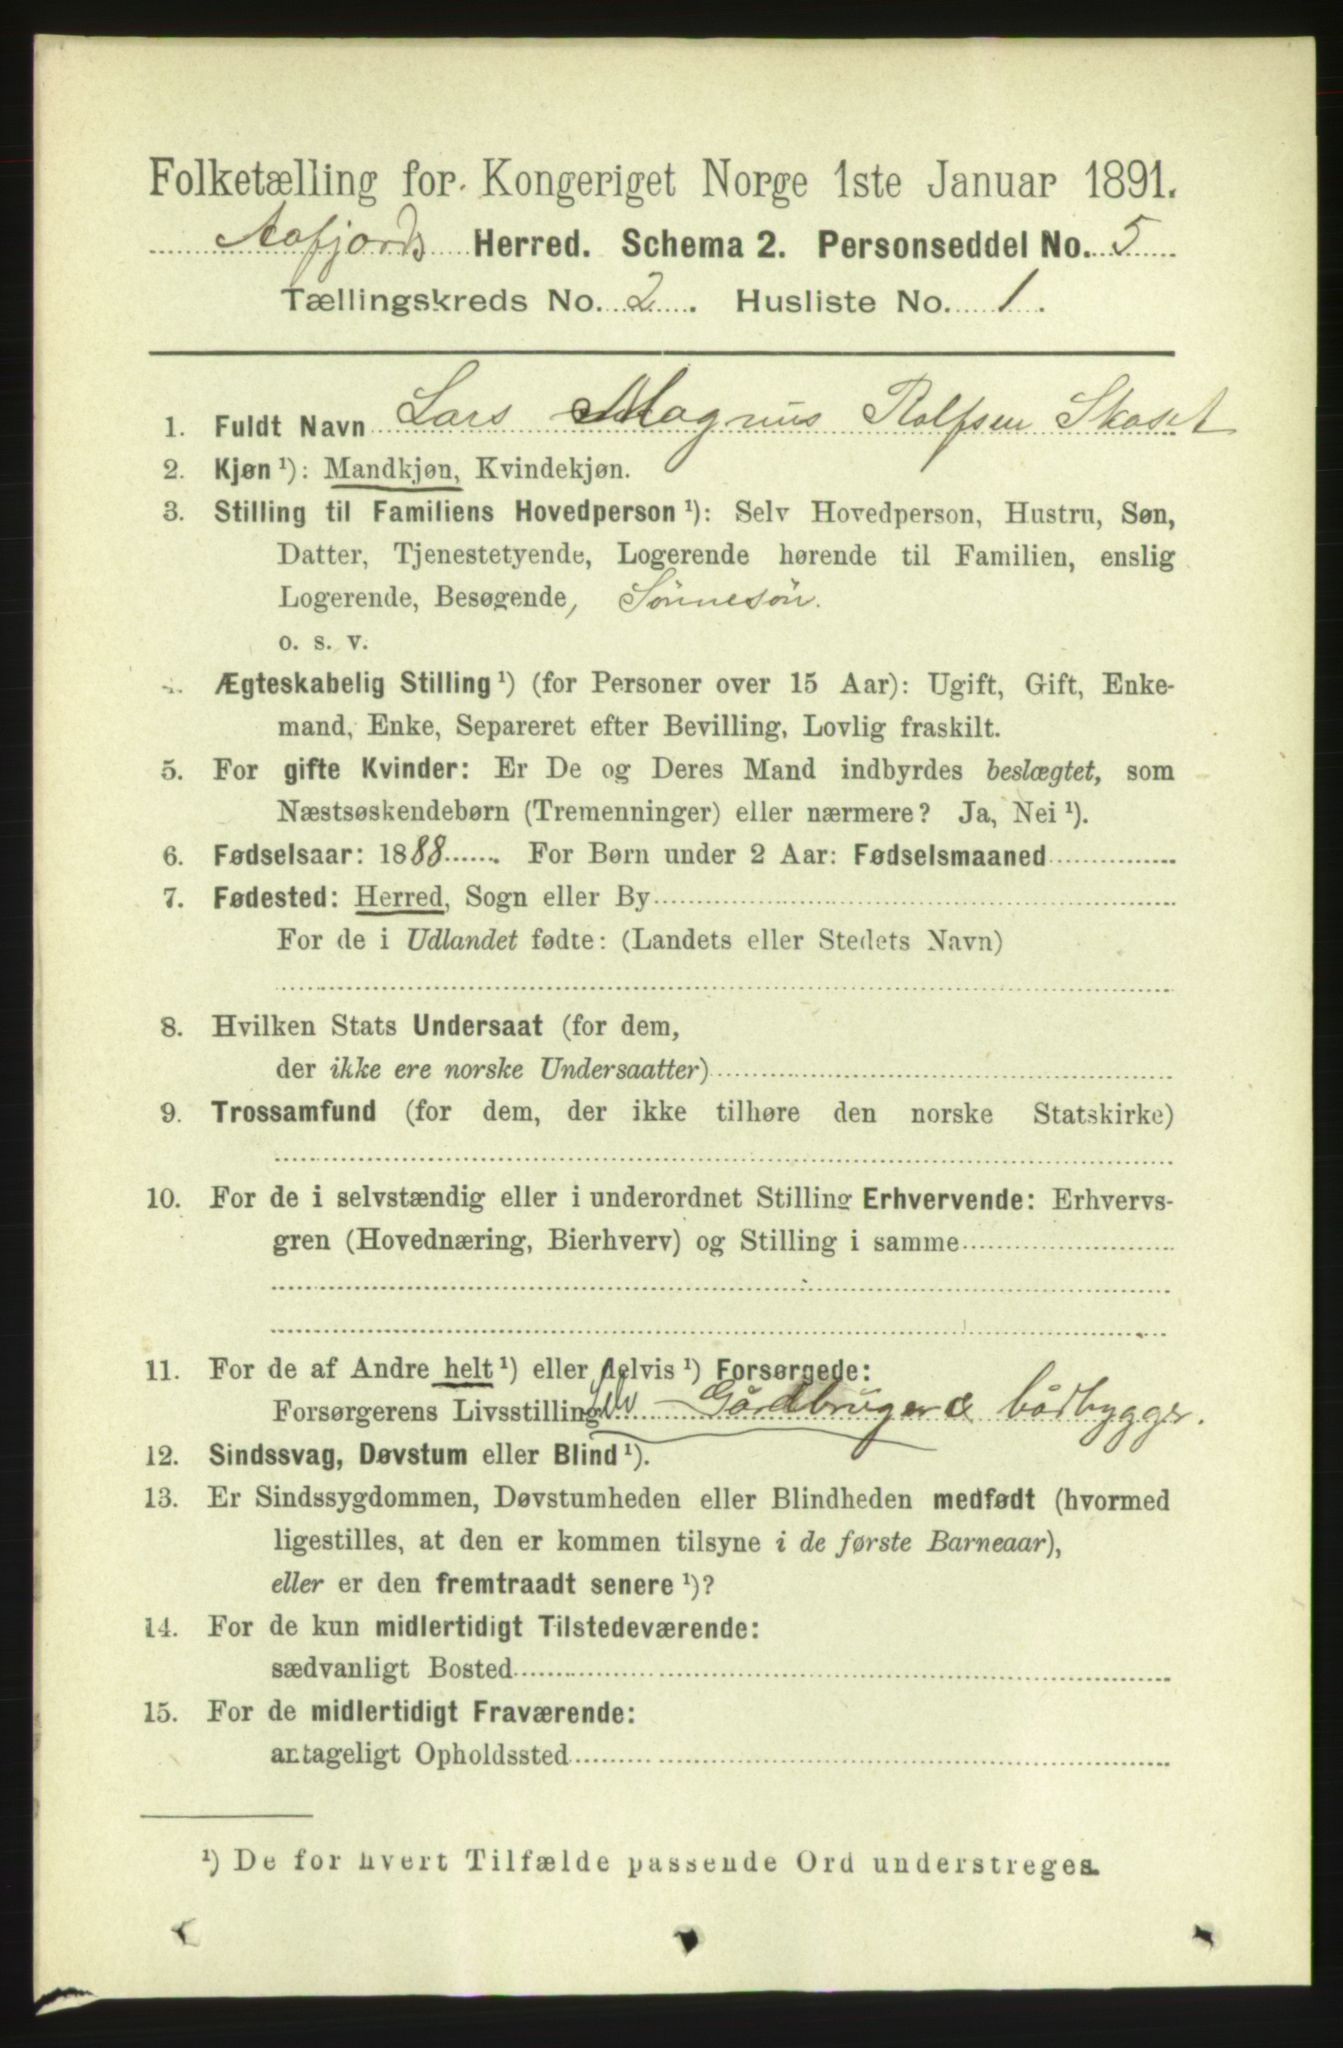 Folketælling for Kongeriget Norge 1ste Januar 1891.
Aafjords Herred. Schema 2. Personseddel No. 5
Tællingskreds No. 2. Husliste No. 1.
1. Fuldt Navn Lars Magnus Rolfsen Skaset
2. Kjøn ¹): Mandkjøn, Kvindekjøn.
3. Stilling til Familiens Hovedperson ¹): Selv Hovedperson, Hustru, Søn,
Datter, Tjenestetyende, Logerende hørende til Familien, enslig
Logerende, Besøgende, Sønnesøn.
o. s. v.
4. Ægteskabelig Stilling ¹) (for Personer over 15 Aar): Ugift, Gift, Enke-
mand, Enke, Separeret efter Bevilling, Lovlig fraskilt.
5. For gifte Kvinder: Er De og Deres Mand indbyrdes beslægtet, som
Næstsøskendebørn (Tremenninger) eller nærmere? Ja, Nei ¹).
6. Fødselsaar: 1888. For Børn under 2 Aar: Fødselsmaaned
7. Fødested: Herred, Sogn eller By
For de i Udlandet fødte: (Landets eller Stedets Navn)
8. Hvilken Stats Undersaat (for dem,
der ikke ere norske Undersaatter)
9. Trossamfund (for dem, der ikke tilhøre den norske Statskirke)
10. For de i selvstændig eller i underordnet Stilling Erhvervende: Erhvervs-
gren (Hovednæring, Bierhverv) og Stilling i samme
11. For de af Andre helt ¹) eller delvis ¹) Forsørgede:
Forsørgerens Livsstilling Selv Gårdbruger & båtbygger.
12. Sindssvag, Døvstum eller Blind ¹).
13. Er Sindssygdommen, Døvstumheden eller Blindheden medfødt (hvormed
ligestilles, at den er kommen tilsyne i de første Barneaar),
eller er den fremtraadt senere ¹)?
14. For de kun midlertidigt Tilstedeværende:
sædvanligt Bosted
15. For de midlertidigt Fraværende:
antageligt Opholdssted
¹) De for hvert Tilfælde passende Ord understreges.